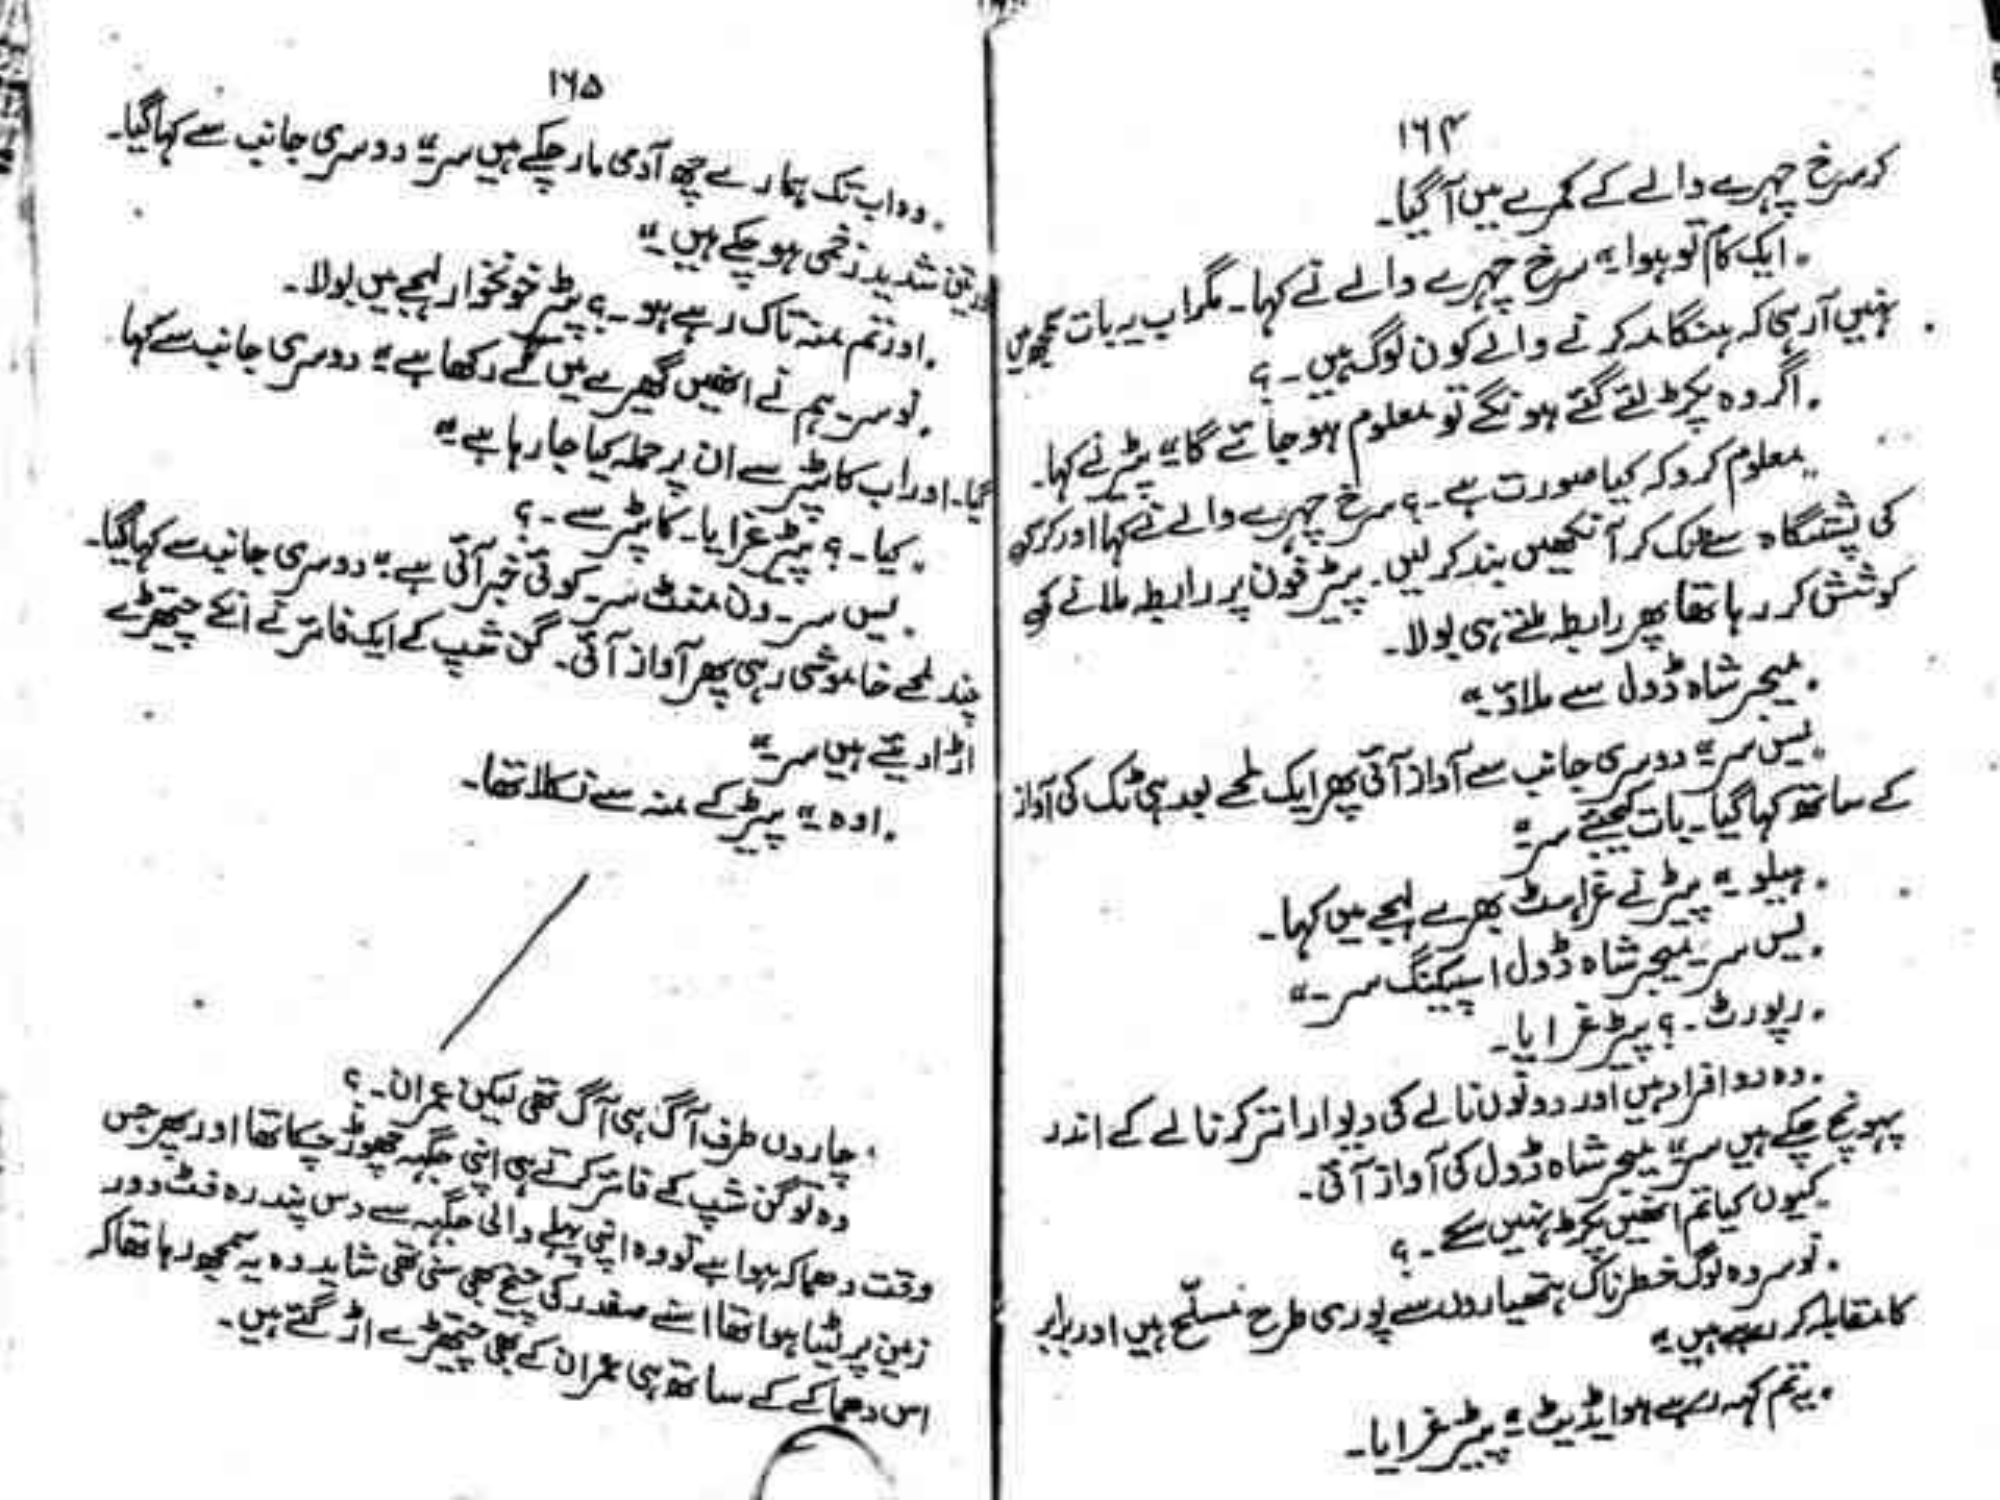 ۱۶۴
کر سرخ چہرے والے کے کمرے میں آ گیا۔
"ایک کام تو ہوا۔" سرخ چہرے والے نے کہا۔ مگر اب یہ بات سمجھ میں
نہیں آ رہی کہ ہنگامہ کرنے والے کون لوگ ہیں۔؟
"اگر وہ پکڑ لئے گئے ہونگے تو معلوم ہو جائے گا۔" پیٹر نے کہا۔
"معلوم کرو کہ کیا صورت ہے۔؟ سرخ چہرے والے نے کہا اور کرسی
کی پشتگاہ سے ٹک کر آنکھیں بند کر لیں۔ پیٹر فون پر رابطہ ملانے کی
کوشش کر رہا تھا پھر رابطہ ملتے ہی بولا۔
"میجر شاہ ڈول سے ملاؤ۔"
"یس سر۔" دوسری جانب سے آواز آئی پھر ایک لمحے بعد ہی ٹک کی آواز
کے ساتھ کہا گیا۔ بات کیجئے سر۔"
"ہیلو۔" پیٹر نے غراہٹ بھرے لہجے میں کہا۔
"یس سر۔ میجر شاہ ڈول اسپیکنگ سر۔"
"رپورٹ۔؟ پیٹر غرایا۔
"وہ دو افراد ہیں اور دونوں نالے کی دیوار اتر کر نالے کے اندر
پہونچ چکے ہیں سر۔" میجر شاہ ڈول کی آواز آئی۔
"کیوں کیا تم انھیں پکڑ نہیں سکے۔؟
"نو سر وہ لوگ خطرناک ہتھیاروں سے پوری طرح مسلّح ہیں اور برابر
کا مقابلہ کر رہے ہیں۔"
"یہ تم کہہ رہے ہو ایڈیٹ۔" پیٹر غرایا۔
۱۶۵
"وہ اب تک ہمارے چھ آدمی مار چکے ہیں سر۔" دوسری جانب سے کہا گیا۔
شدید زخمی ہو چکے ہیں۔"
"اور تم منہ تاک رہے ہو۔؟ پیٹر خونخوار لہجے میں بولا۔
"نو سر۔ ہم نے انھیں گھیرے میں لے رکھا ہے۔" دوسری جانب سے کہا
گیا۔ اور اب کاپٹر سے ان پر حملہ کیا جا رہا ہے۔"
"کیا۔؟ پیٹر غرایا۔ کاپٹر سے۔؟
"یس سر۔ ون منٹ سر۔ کوئی خبر آئی ہے۔" دوسری جانب سے کہا گیا۔
چند لمحے خاموشی رہی پھر آواز آئی۔ گن شپ کے ایک فائر نے انکے چیتھڑے
اڑا دیئے ہیں سر۔"
"اوہ۔" پیٹر کے منہ سے نکلا تھا۔
چاروں طرف آگ ہی آگ تھی لیکن عمران۔؟
وہ تو گن شپ کے فائر کرتے ہی اپنی جگہ چھوڑ چکا تھا اور پھر جس
وقت دھماکہ ہوا ہے تو وہ اپنی پہلے والی جگہ سے دس پندرہ فٹ دور
زمین پر لیٹا ہوا تھا اسنے صفدر کی چیخ بھی سنی تھی شاید وہ یہ سمجھ رہا تھا کہ
اس دھماکے کے ساتھ ہی عمران کے بھی چیتھڑے اڑ گئے ہیں۔